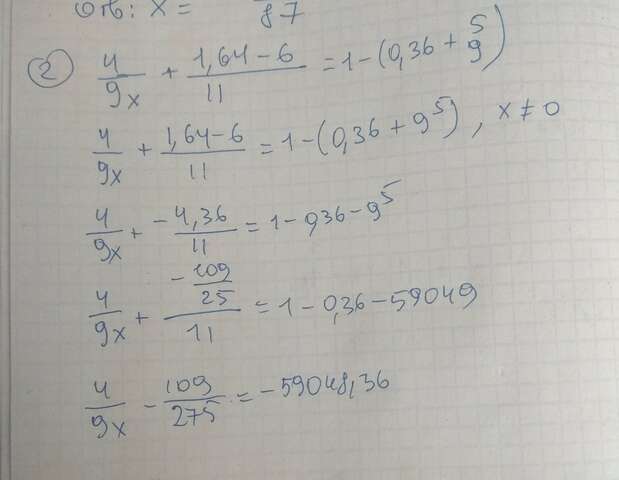 Отв: x = 87
② 4/9x + (1,64-6)/11 = 1-(0,36 + 9^5)
4/9x + (1,64-6)/11 = 1-(0,36 + 9^5), x ≠ 0
4/9x + (-4,36)/11 = 1-0,36-9^5
4/9x + (-109/25)/11 = 1-0,36-59049
4/9x - 109/275 = -59048,36